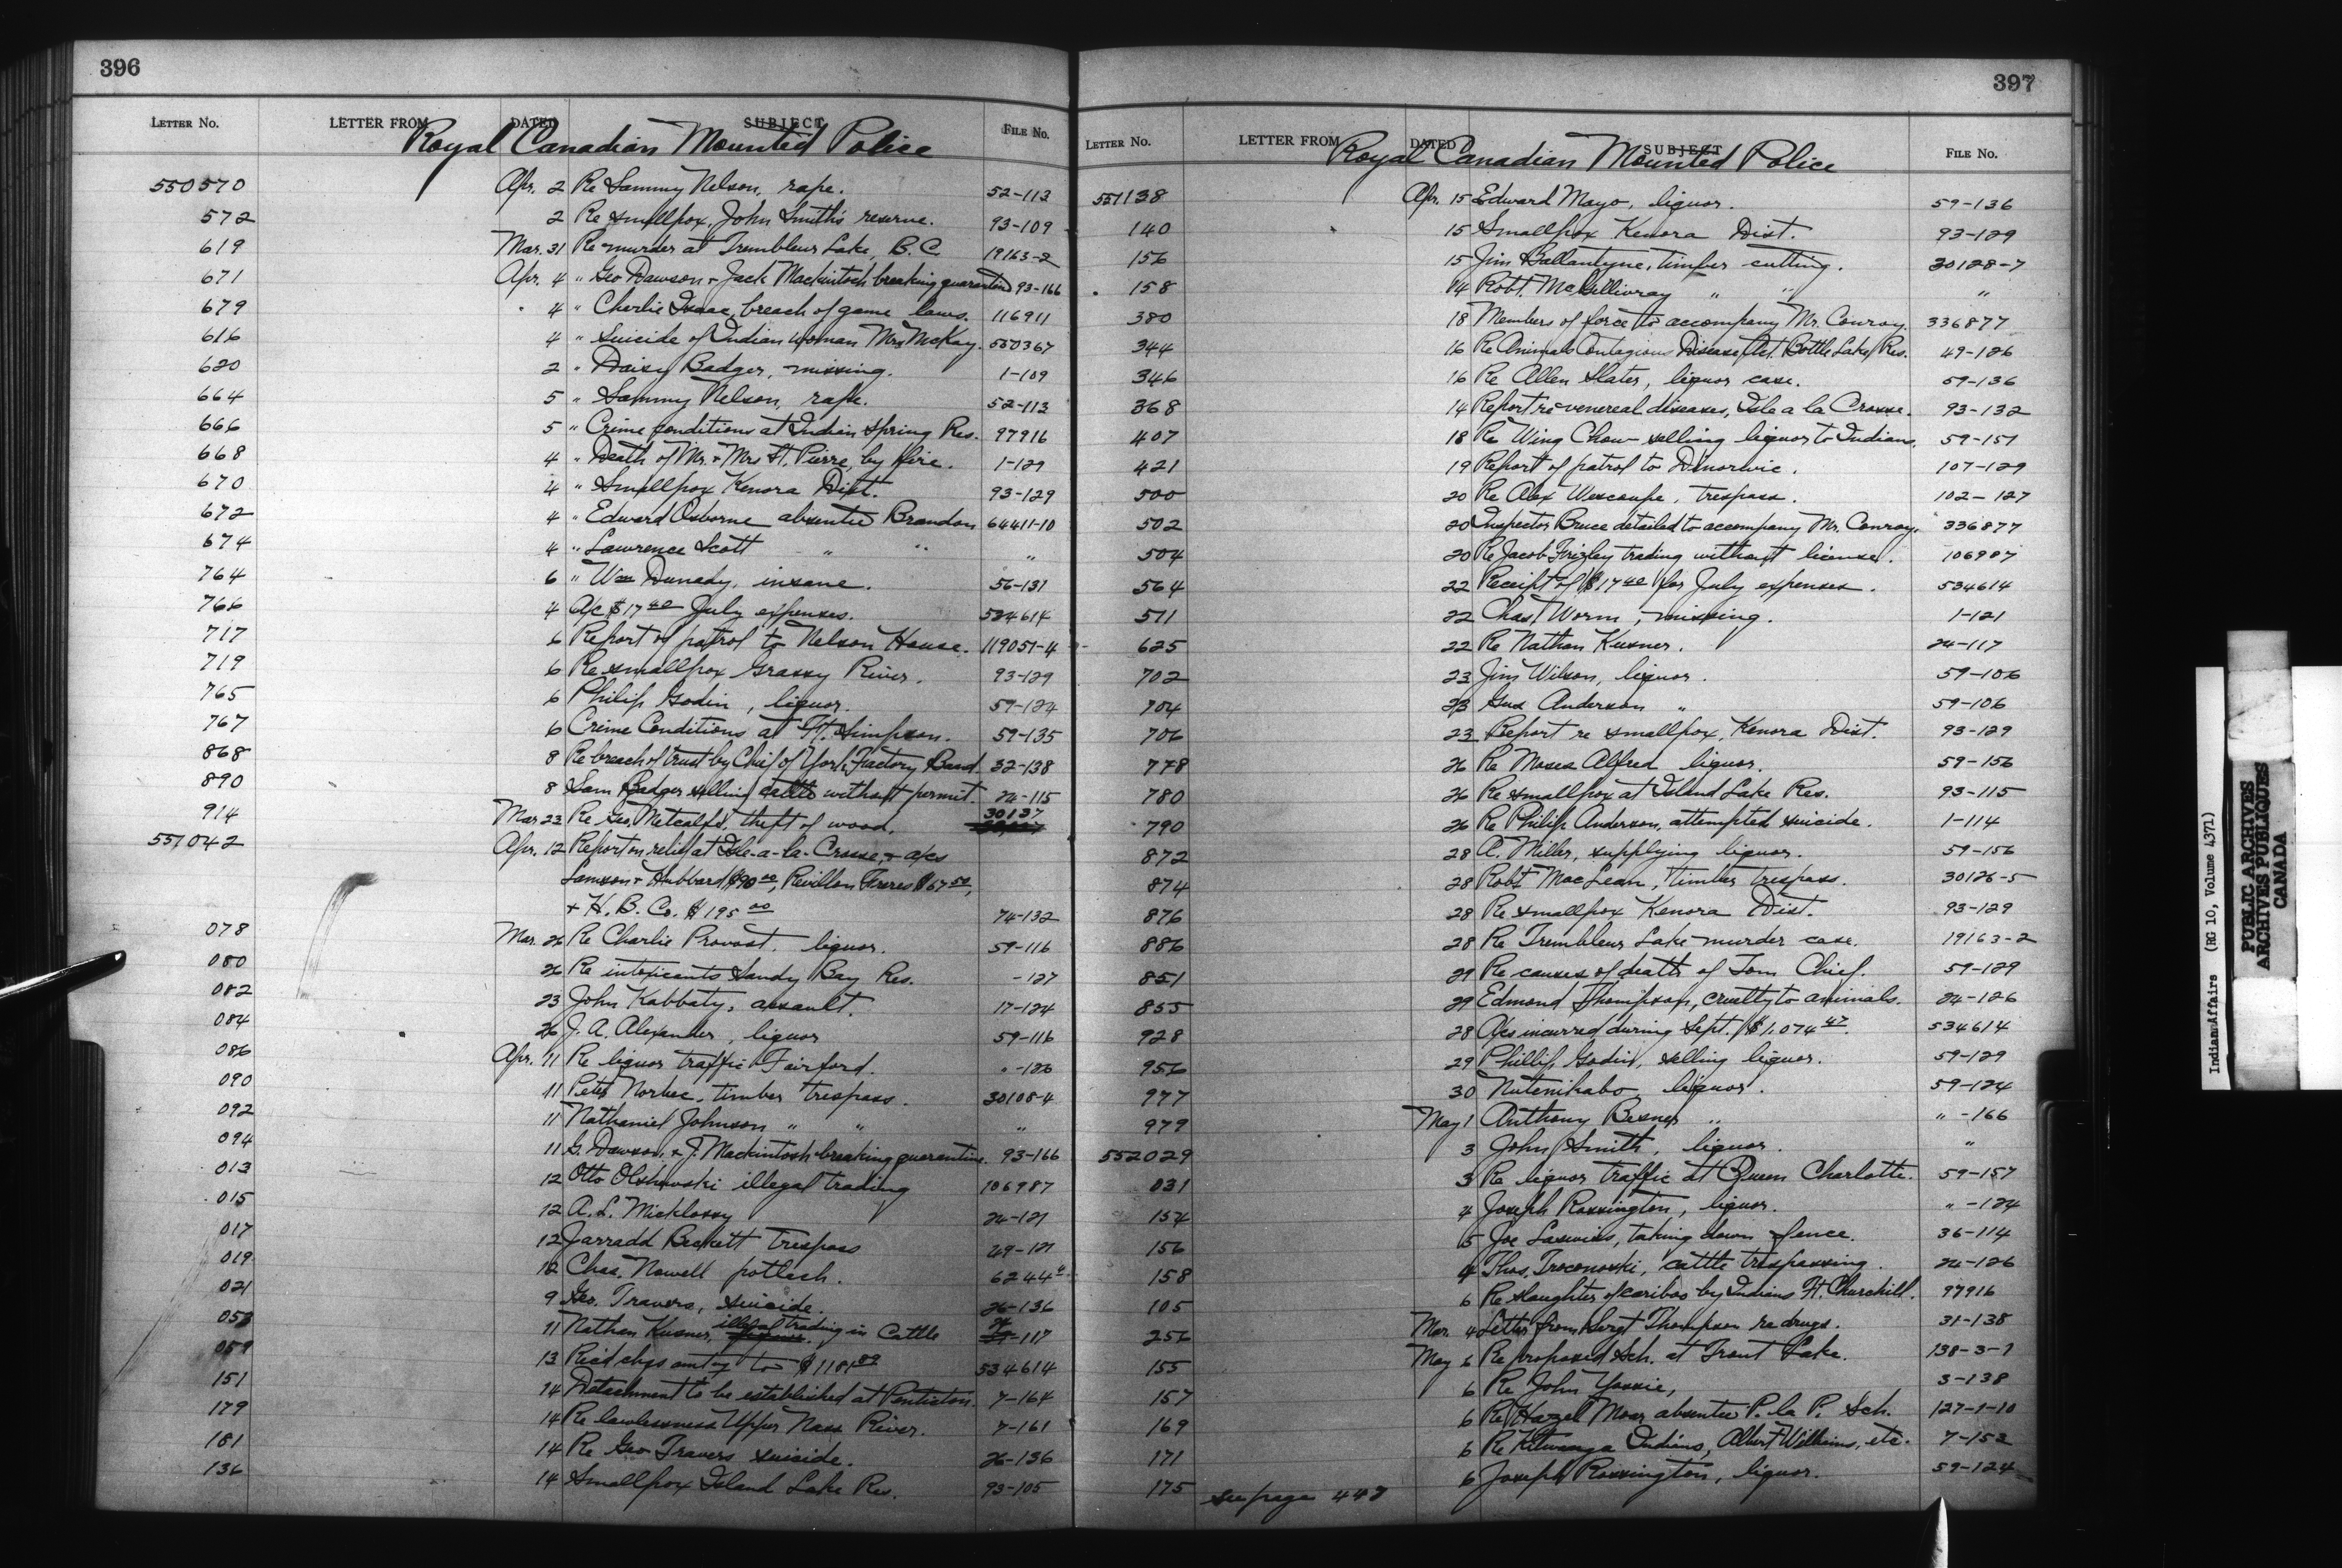 396
LETTER No. LETTER FROM DATED SUBJECT FILE No.
Royal Canadian Mounted Police
550570 Apr. 2 Re Sammy Nelson, rape. 52-113
572 2 Re smallpox, John Smith's reserve. 93-109
619 Mar. 31 Re murder at Trembleur Lake, B.C. 19163-2
671 Apr. 4 " Geo Dawson + Jack Mackintosh breaking quarantine 93-166
679 4 " Charlie Isaac, breach of game laws. 116911
616 4 " Suicide of Indian woman Mrs McKay. 550367
620 2 " Daisy Badger, missing. 1-109
664 5 " Sammy Nelson, rape. 52-113
666 5 " Crime conditions at Indian Spring Res. 97916
668 4 " Death of Mr. + Mrs St. Pierre, by fire. 1-129
670 4 " Smallpox Kenora Dist. 93-129
672 4 " Edward Osborne absentee Brandon 64411-10
674 4 " Lawrence Scott " " "
764 6 " Wm Dunady, insane. 56-131
766 4 A/c $17 40 July expenses. 534614
717 6 Report of patrol to Nelson House. 119051-4
719 6 Re smallpox Grassy River. 93-129
765 6 Philip Godin, liquor. 59-124
767 6 Crime Conditions at Ft. Simpson. 59-135
868 8 Re breach of trust by Chief of York Factory Band. 32-138
890 8 Sam Badger selling cattle without permit. 24-115
914 Mar. 23 Re Geo. Metcalfe, theft of wood. 30137
551042 Apr. 12 Report on relief at Isle-a-la-Crosse, + a/cs
Lamson + Hubbard $90 00, Revillon Freres $67 50,
+ H. B. Co. $195 00 74-132
078 Mar. 26 Re Charlie Provost. liquor. 59-116
080 26 Re intoxicants Sandy Bay Res. -127
082 23 John Kabbaty, assault. 17-124
084 26 J. A. Alexander, liquor 59-116
086 Apr. 11 Re liquor traffic Fairford. " -126
090 11 Peter Norbec, timber trespass. 30108-4
092 11 Nathaniel Johnson " " "
094 11 G. Dawson + J. Mackintosh breaking quarantine. 93-166
013 12 Otto Olshewski illegal trading 106987
015 12 A. L. 24-121
017 12 Jarradd Beckett trespass 29-121
019 12 Chas. Nowell potlach. 6244
021 9 Geo. Travers, suicide. 26-136
053 11 Nathan Kusner, illegal trading in Cattle 24-117
059 13 Rec'd chgs amt'g to $1181 89 534614
151 14 Detachment to be established at Penticton. 7-164
179 14 Re lawlessness Upper Nass River. 7-161
181 14 Re Geo Travers suicide. 26-136
136 14 Smallpox Island Lake Res. 93-105
397
LETTER No. LETTER FROM DATED SUBJECT FILE No.
Royal Canadian Mounted Police
551138 Apr. 15 Edward Mayo, liquor. 59-136
140 15 Smallpox Kenora Dist. 93-129
156 15 Jim Ballantyne, timber cutting. 30128-7
158 14 Robt. McGillivray " " "
380 18 Members of force to accompany Mr. Conroy. 336877
344 16 Re Animals Contagious Disease Act. Bottle Lake Res. 49-126
346 16 Re Allen Slater, liquor case. 59-136
368 14 Report re venereal diseases, Isle a la Crosse. 93-132
407 18 Re Wing Chow selling liquor to Indians. 59-151
421 19 Report of patrol to Dinorwic. 107-129
500 20 Re Alex Wescoupe, trespass. 102-127
502 20 Inspector Bruce detailed to accompany Mr. Conroy. 336877
504 20 Re Jacob Frizley trading without license. 106987
564 22 Receipt of $17 40 for July expenses. 534614
571 22 Chas. Worm, missing. 1-121
625 22 Re Nathan Kusner. 24-117
702 23 Jim Wilson, liquor. 59-106
704 23 Gus Anderson " 59-106
706 23 Report re smallpox, Kenora Dist. 93-129
778 26 Re Moses Alfred liquor. 59-156
780 26 Re smallpox at Island Lake Res. 93-115
790 26 Re Philip Anderson, attempted suicide. 1-114
872 28 A. Miller, supplying liquor. 59-156
874 28 Robt MacLean, timber trespass. 30126-5
876 28 Re smallpox Kenora Dist. 93-129
886 28 Re Trembleur Lake murder case. 19163-2
851 29 Re causes of death of Tom Chief. 59-129
855 29 Edmond Thompson, cruelty to animals. 24-126
928 28 A/cs incurred during Sept. $1.074 47. 534614
956 29 Phillip Godin, selling liquor. 59-129
977 30 liquor. 59-124
979 May 1 Anthony " " -166
552029 3 John Smith, liquor. "
031 3 Re liquor traffic at Queen Charlotte. 59-157
154 4 Joseph Rossington, liquor. " -124
156 5 Joe taking down fence. 36-114
158 4 Thos. cattle trespassing. 24-126
105 6 Re slaughter of caribou by Indians Ft. Churchill. 97916
256 Mar. 4 Letter from Sergt Thompson re drugs. 31-138
155 May 6 Re proposed Sch. at Trout Lake. 138-3-1
157 6 Re John 3-138
169 6 Re Hazel Moar absentee P. la P. Sch. 127-1-10
171 6 Re Kitwanga Indians, Albert Williams, etc. 7-152
175 6 Joseph Rossington, liquor. 59-124
see page 447
Indian Affairs (RG 10, Volume 4371)
PUBLIC ARCHIVES
ARCHIVES PUBLIQUES
CANADA